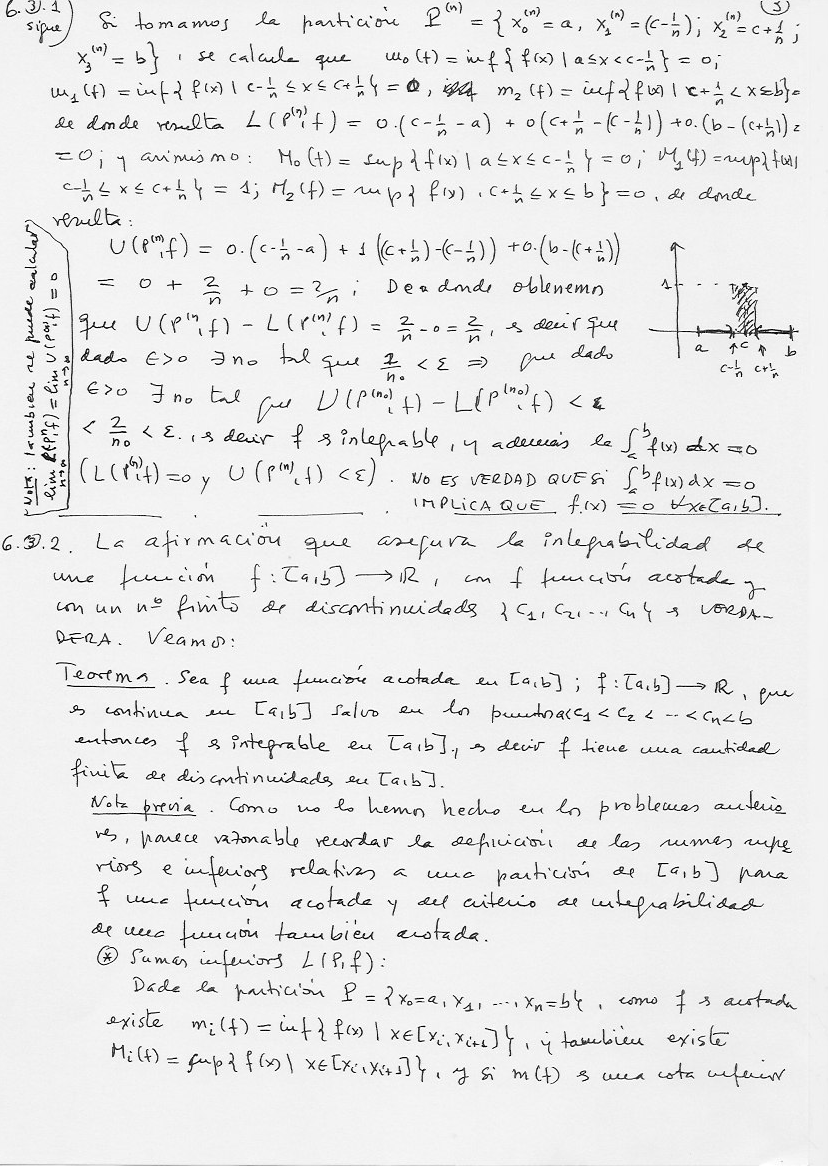 6.3.1 (3)
sigue) Si tomamos la partición P⁽ⁿ⁾ = { x₀⁽ⁿ⁾ = a, x₁⁽ⁿ⁾ = (c-1/n); x₂⁽ⁿ⁾ = c+1/n;
x₃⁽ⁿ⁾ = b}, se calcula que m₀(f) = inf{ f(x) | a≤x<c-1/n} = 0;
m₁(f) = inf{ f(x) | c-1/n ≤ x ≤ c+1/n} = 0, m₂(f) = inf{f(x) | c+1/n < x ≤ b}=
de donde resulta L(P⁽ⁿ⁾,f) = 0.(c-1/n-a) + 0(c+1/n-(c-1/n)) + 0.(b-(c+1/n)) =
= 0; y asimismo: M₀(f) = sup{ f(x) | a≤x≤c-1/n} = 0; M₁(f) = sup{f(x)|
c-1/n ≤ x ≤ c+1/n} = 1; M₂(f) = sup{ f(x), c+1/n ≤ x ≤ b} = 0, de donde
resulta:
U(P⁽ⁿ⁾,f) = 0.(c-1/n-a) + 1((c+1/n)-(c-1/n)) + 0.(b-(c+1/n))
= 0 + 2/n + 0 = 2/n; De donde obtenemos
que U(P⁽ⁿ⁾,f) - L(P⁽ⁿ⁾,f) = 2/n - 0 = 2/n, es decir que
dado ε>0 ∃ n₀ tal que 2/n₀ < ε ⇒ que dado
ε>0 ∃ n₀ tal que U(P⁽ⁿ⁰⁾,f) - L(P⁽ⁿ⁰⁾,f) < ε
< 2/n₀ < ε, es decir f es integrable, y además la ∫ₐᵇ f(x) dx = 0
(L(P⁽ⁿ⁾,f)=0 y U(P⁽ⁿ⁾,f) < ε). NO ES VERDAD QUE SI ∫ₐᵇ f(x) dx = 0
IMPLICA QUE f(x) = 0 ∀x∈[a,b].
Nota: También se puede calcular
lim L(Pⁿ,f) = lim U(P⁽ⁿ⁾,f) = 0
n→∞ n→∞
1
a c b
c-1/n c+1/n
6.3.2. La afirmación que asegura la integrabilidad de
una función f: [a,b] → R, con f función acotada y
con un nº finito de discontinuidades {c₁, c₂, .., cₙ} es VERDA-
DERA. Veamos:
Teorema. Sea f una función acotada en [a,b]; f: [a,b] → R, que
es continua en [a,b] salvo en los puntos a<c₁ < c₂ < ... < cₙ<b
entonces f es integrable en [a,b], es decir f tiene una cantidad
finita de discontinuidades en [a,b].
Nota previa. Como no lo hemos hecho en los problemas anterio
res, parece razonable recordar la definición de las sumas supe
riores e inferiores relativas a una partición de [a,b] para
f una función acotada y del criterio de integrabilidad
de una función también acotada.
⊛ Sumas inferiores L(P,f):
Dada la partición P = {x₀=a, x₁, ..., xₙ=b}, como f es acotada
existe mᵢ(f) = inf{ f(x) | x∈[xᵢ, xᵢ₊₁]}, y también existe
Mᵢ(f) = sup{ f(x) | x∈[xᵢ, xᵢ₊₁]}, y si m(f) es una cota inferior